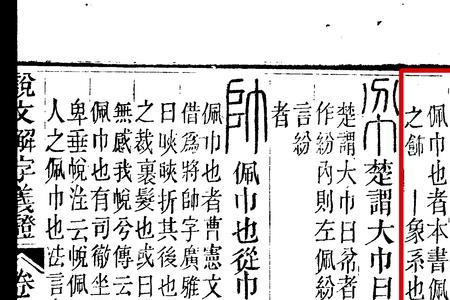 佩巾也者本書佩
之飾丨象系也
帉楚謂大巾曰
楚謂大巾曰帉者
作紛內則左佩紛
言紛
者
帥佩巾也從巾
佩巾也者曹憲文
借為將帥字廣雅
曰映映折其後也
之裁裹髮也或曰
無感我帨兮傳云
佩巾也有司徹坐
卑垂帨注云帨佩
人之佩巾也法言
說文解字義證 卷